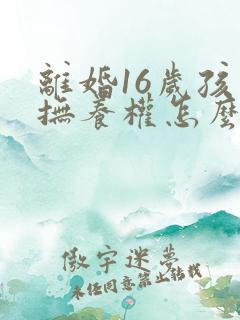 離婚16歲孩
撫養權怎麼
傲宇迷夢
未经同意禁止转载